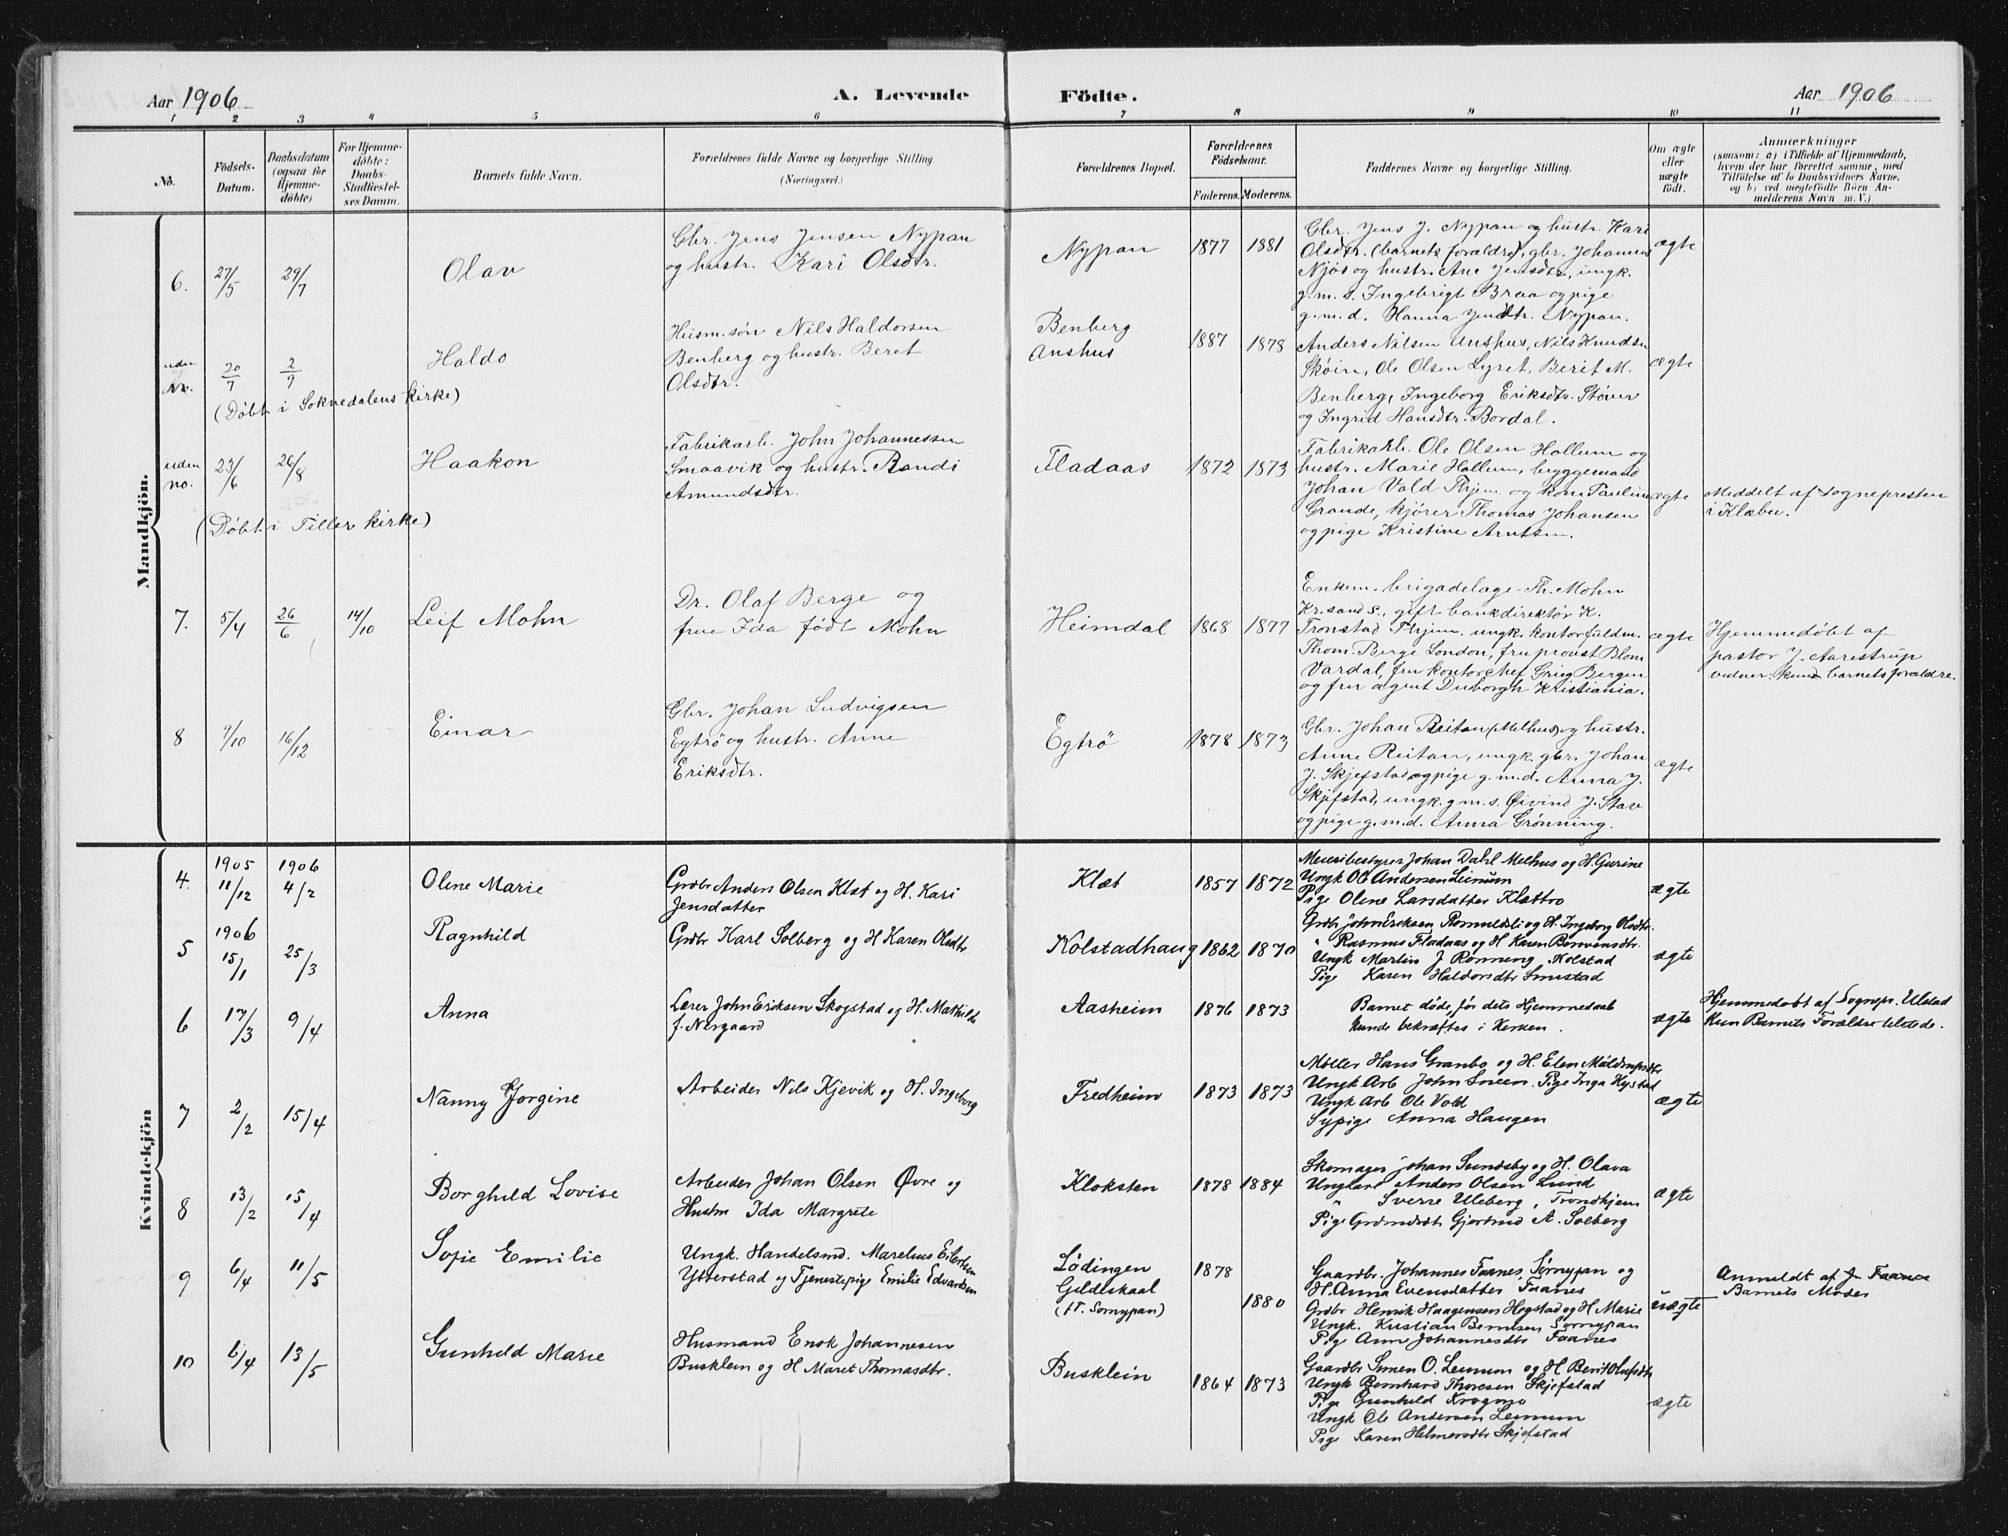 Aar 1906 A. Levende Födte. Aar 1906
1 2 3 4 5 6 7 8 9 10 11
No.
Födsels-Datum.
Daabsdatum (ogsaa för Hjemme-döbte)
For Hjemme-döbte: Daabs-Stadfæstel-ses Datum.
Barnets fulde Navn.
Forældrenes fulde Navne og borgerlige Stilling.
(Næringsvei.)
Forældrenes Bopæl.
Forældrenes Födselsaar.
Faderens. Moderens.
Faddernes Navne og borgerlige Stilling.
Om ægte eller uægte födt.
Anmærkninger
(saasom: a) i Tilfælde af Hjemmedaab,
hvem der har forrettet samme, med
Tilföielse af to Daabsvidners Navne.
og b) ved uægtefödte Börn An-
melderens Navn m. V.)
Mandkjön.
6. 27/5 29/7 Olav
Gbr. Jens Jensen Nypan
og hustr. Kari Olsdtr.
Nypan 1877 1881
Gbr. Jens J. Nypan og hustr. Kari
Olsdtr. (barnets forældre), gbr. Johannes
Njøs og hustr. Ane Jensdtr., ungk.
g.m.s. Ingebrigt Braa og pige
g.m.d. Hanna Jensdtr. Nypan.
ægte
uden No. 20/7 2/9 Haldo
(Døbt i Soknedalens kirke)
Husm.søn Nils Haldorsen
Benberg og hustr. Beret
Olsdtr.
Benberg
Anshus
1887 1878
Anders Nilsen Anshus, Nils Knudsen
Skøin, Ole Olsen Lyret, Berit M.
Benberg, Ingeborg Eriksdtr. Støver
og Ingrid Hansdtr. Bordal.
ægte
uden no. 23/6 26/8 Haakon
(Døbt i Tiller kirke)
Fabrikarb. John Johannessen
Smaavik og hustr. Randi
Amundsdtr.
Fladaas 1872 1873
Fabrikarb. Ole Olsen Hallum og
hustr. Marie Hallum, bryggemand
Johan Vald Thjem og kone Pauline
Grande, kjører Thomas Johansen
og pige Kristine Arntsen.
ægte
Meddelt af sognepresten
i Klæbu.
7. 5/4 26/6 14/10 Leif Mohn
Dr. Olaf Berge og
frue Ida født Mohn
Heimdal 1868 1877
Enkem. brigadelæge Th. Mohn
Kr.sand S., gift bankdirektør K.
Tronstad Thjem. ungk. kontorfuldm.
Thom. Berge London, fru provst Blom
Vardal, fru kontorchef Grieg Bergen
og fru agent Duborgh Kristiania.
ægte
Hjemmedøbt af
pastor J. Aarestrup
vidner: kun barnets forældre.
8 9/10 16/12 Einar
Gbr. Johan Ludvigsen
Egtrø og hustr. Anne
Eriksdtr.
Egtrø 1878 1873
Gbr. Johan Reitan (Melhus) og hustr.
Anne Reitan, ungk. gbr. Johan
J. Skjefstad og pige g.m.d. Anna J.
Skjefstad, ungk. g.m.s. Øivind J. Stav
og pige g.m.d. Anna Grønning.
ægte
Kvindekjön
4. 1905 11/12 1906 4/2 Olene Marie
Grdbr Anders Olsen Klæt og H. Kari
Jensdatter
Klæt 1857 1872
Meieribestyrer Johan Dahl Melhus og H. Gurine
Ungk Ole Andersen Leinum
Pige Olene Larsdatter Klættrø
ægte
5 1906 15/1 25/3 Ragnhild
Grdbr Karl Solberg og H Karen Olsdtr
Kolstadhaug 1862 1870
Grdbr John Eriksen Romuldsli og H. Ingeborg Olsdtr.
" Rasmus Fladaas og H Karen Bersvensdtr.
Ungk Martin J Rønning Kolstad
Pige Karen Haldorsdtr Smistad
ægte
6 17/3 9/4 Anna
Lærer John Eriksen Skogstad og H. Mathilde
f. Nergaard
Aasheim 1876 1873
Barnet døde, før dets Hjemmedaab
kunde bekræftes i Kirken.
ægte
Hjemmedøbt af Sognepr. Ulstad
Kun Barnets Forældre tilstede.
7 2/2 15/4 Nanny Jørgine
Arbeider Nils Kjevik og H. Ingeborg
Fredheim 1873 1873
Møller Hans Granbo og H. Elen
Ungk Arb John Sneen. Pige Inga Hystad
Ungk Arb Ole Vold
Sypige Anna Haugen
ægte
8 13/2 15/4 Borghild Lovise
Arbeider Johan Olsen Øvre og
Hustru Ida Margrete
Kloksten 1878 1884
Skomager Johan Sundsby og H. Olava
Ungkare Anders Olsen Lund
" Sverre Uleberg, Trondhjem
Pige Gjertrud A. Solberg
ægte
9 6/4 11/5 Sofie Emilie
Ungk. Handelsmd. Marelius Eilertsen
Ytterstad og Tjenestepige Emilie Edvardsen
Lødingen
Gildeskaal
(f.T. Sørnypan)
1878
1880
Gaardbr. Johannes Faanes, Sørnypan og
H. Anna Evensdatter Faanes
Grdbr Henrik Haagensen Høgstad og H Marie
Ungk. Kristian Berntsen Sørnypan
Pige Anne Johannesdtr Faanes
uægte
Anmeldt af J Faanes
Barnets Moder
10 6/4 13/5 Gunhild Marie
Husmand Enok Johannesen
Busklein og H Maret Thomasdtr.
Busklein 1864 1873
Gaardbr Simen O. Leinum og H Berit Olufsdtr
Ungk Bernhard Thoresen Skjefstad
Pige Gunhild Krogmo
Ungk Ole Andersen Leinum
Pige Karen Helmersdtr Skjefstad
ægte